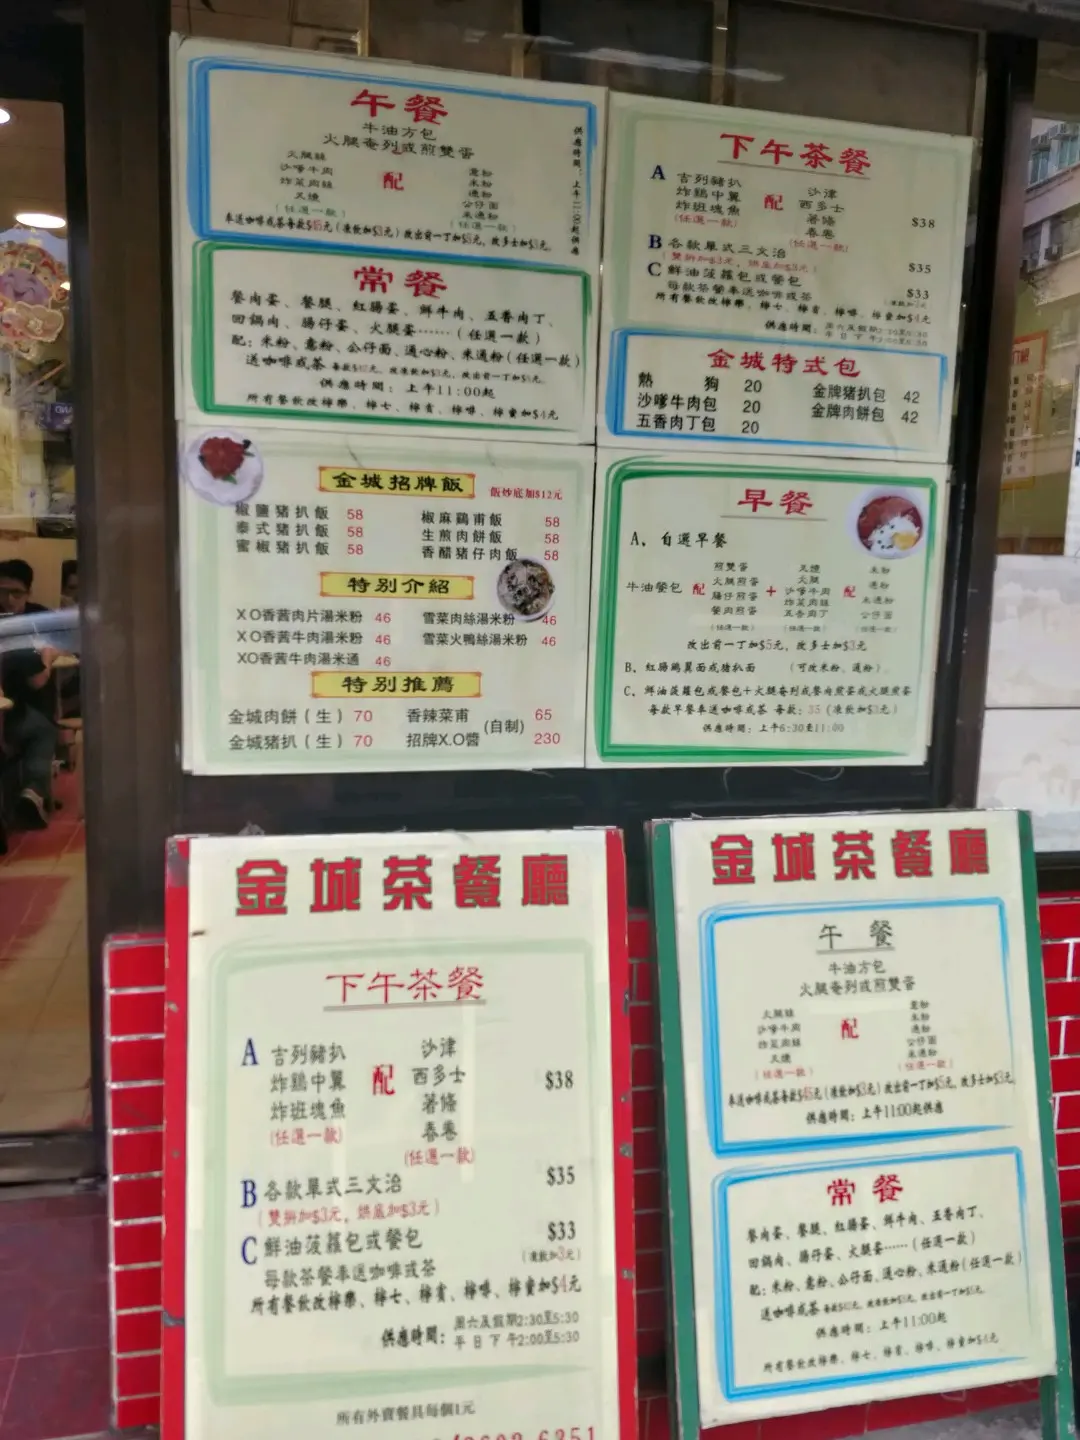 午餐
牛油方包
火腿奄列或煎雙蛋
火腿絲
沙嗲牛肉
炸菜肉絲
叉燒
(任選一款)
配
意粉
米粉
通粉
公仔面
米通粉
(任選一款)
車送咖啡或茶每款$45元(凍飲加$3元)改出前一丁加$5元, 改多士加$3元
供應時間：上午11:00起供應
常餐
餐肉蛋、餐腿、紅腸蛋、鮮牛肉、五香肉丁、
回鍋肉、腸仔蛋、火腿蛋……(任選一款)
配：米粉、意粉、公仔面、通心粉、米通粉(任選一款)
送咖啡或茶
供應時間：上午11:00起
所有餐飲改檸樂、檸七、檸賓、檸啡、檸蜜加$4元
下午茶餐
A 吉列豬扒
炸鷄中翼
炸班塊魚
(任選一款)
配
沙津
西多士
薯條
春卷
(任選一款)
$38
B 各款單式三文治
(雙拼加$3元, 烘底加$3元)
$35
C 鮮油菠蘿包或餐包
$33
每款茶餐車送咖啡或茶
所有餐飲改檸樂、檸七、檸賓、檸啡、檸蜜加$4元
供應時間：周六及假期2:30至5:30
平日下午2:00至5:30
金城特式包
熱狗 20
沙嗲牛肉包 20
五香肉丁包 20
金牌豬扒包 42
金牌肉餅包 42
金城招牌飯
飯炒底加$12元
椒鹽豬扒飯 58
泰式豬扒飯 58
蜜椒豬扒飯 58
椒麻鷄甫飯 58
生煎肉餅飯 58
香醋豬仔肉飯 58
特别介紹
XO香茜肉片湯米粉 46
XO香茜牛肉湯米粉 46
XO香茜牛肉湯米通 46
雪菜肉絲湯米粉 46
雪菜火鴨絲湯米粉 46
特別推薦
金城肉餅(生) 70
金城豬扒(生) 70
香辣菜甫 65
招牌X.O醬 230
(自制)
早餐
A、自選早餐
牛油餐包
配
煎雙蛋
火腿煎蛋
腸仔煎蛋
餐肉煎蛋
(任選一款)
+
叉燒
火腿
沙嗲牛肉
炸菜肉絲
五香肉丁
(任選一款)
配
米粉
通粉
米通粉
公仔面
(任選一款)
改出前一丁加$5元, 改多士加$3元
B、紅腸鷄翼面或豬扒面 (可改米粉、通粉)
C、鮮油菠蘿包或餐包+火腿奄列或餐肉煎蛋或火腿煎蛋
每款早餐車送咖啡或茶 每款：35(凍飲加$3元)
供應時間：上午6:30至11:00
金城茶餐廳
下午茶餐
A 吉列豬扒
炸鷄中翼
炸班塊魚
(任選一款)
配
沙津
西多士
薯條
春卷
(任選一款)
$38
B 各款單式三文治
(雙拼加$3元, 烘底加$3元)
$35
C 鮮油菠蘿包或餐包
$33
(凍飲加3元)
每款茶餐車送咖啡或茶
所有餐飲改檸樂、檸七、檸賓、檸啡、檸蜜加$4元
供應時間：周六及假期2:30至5:30
平日下午2:00至5:30
所有外賣餐具每個1元
金城茶餐廳
午餐
牛油方包
火腿奄列或煎雙蛋
火腿絲
沙嗲牛肉
炸菜肉絲
叉燒
(任選一款)
配
意粉
米粉
通粉
公仔面
米通粉
(任選一款)
車送咖啡或茶每款$45元(凍飲加$3元)改出前一丁加$5元, 改多士加$3元
供應時間：上午11:00起供應
常餐
餐肉蛋、餐腿、紅腸蛋、鮮牛肉、五香肉丁、
回鍋肉、腸仔蛋、火腿蛋……(任選一款)
配：米粉、意粉、公仔面、通心粉、米通粉(任選一款)
送咖啡或茶
供應時間：上午11:00起
所有餐飲改檸樂、檸七、檸賓、檸啡、檸蜜加$4元